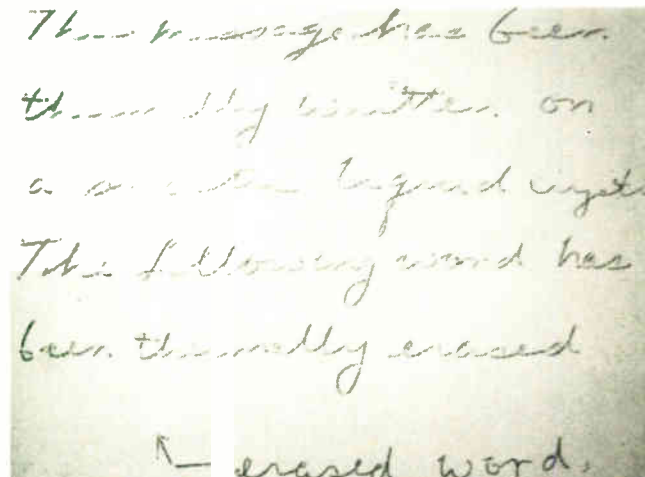 This message has been
thermally written on
a smectic liquid cryst
The following word has
been thermally erased
erased word.